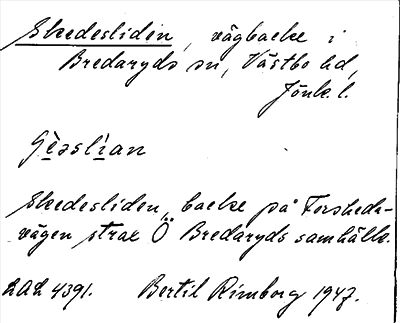 Skedesliden, vägbacke i
Bredaryds sn, Västbo hd,
Jönk. l.
Skedesliden, backe på Forsheda-
vägen strax Ö Bredaryds samhälle.
4391. Bertil Rimborg 1947.